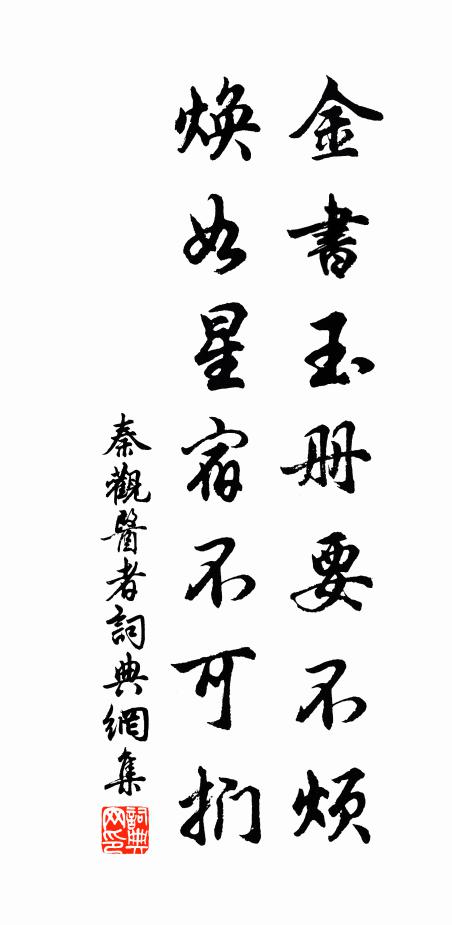 金書玉册要不煩
煥如星宿不可捫
秦觀醫者詞典網集
詞典网印